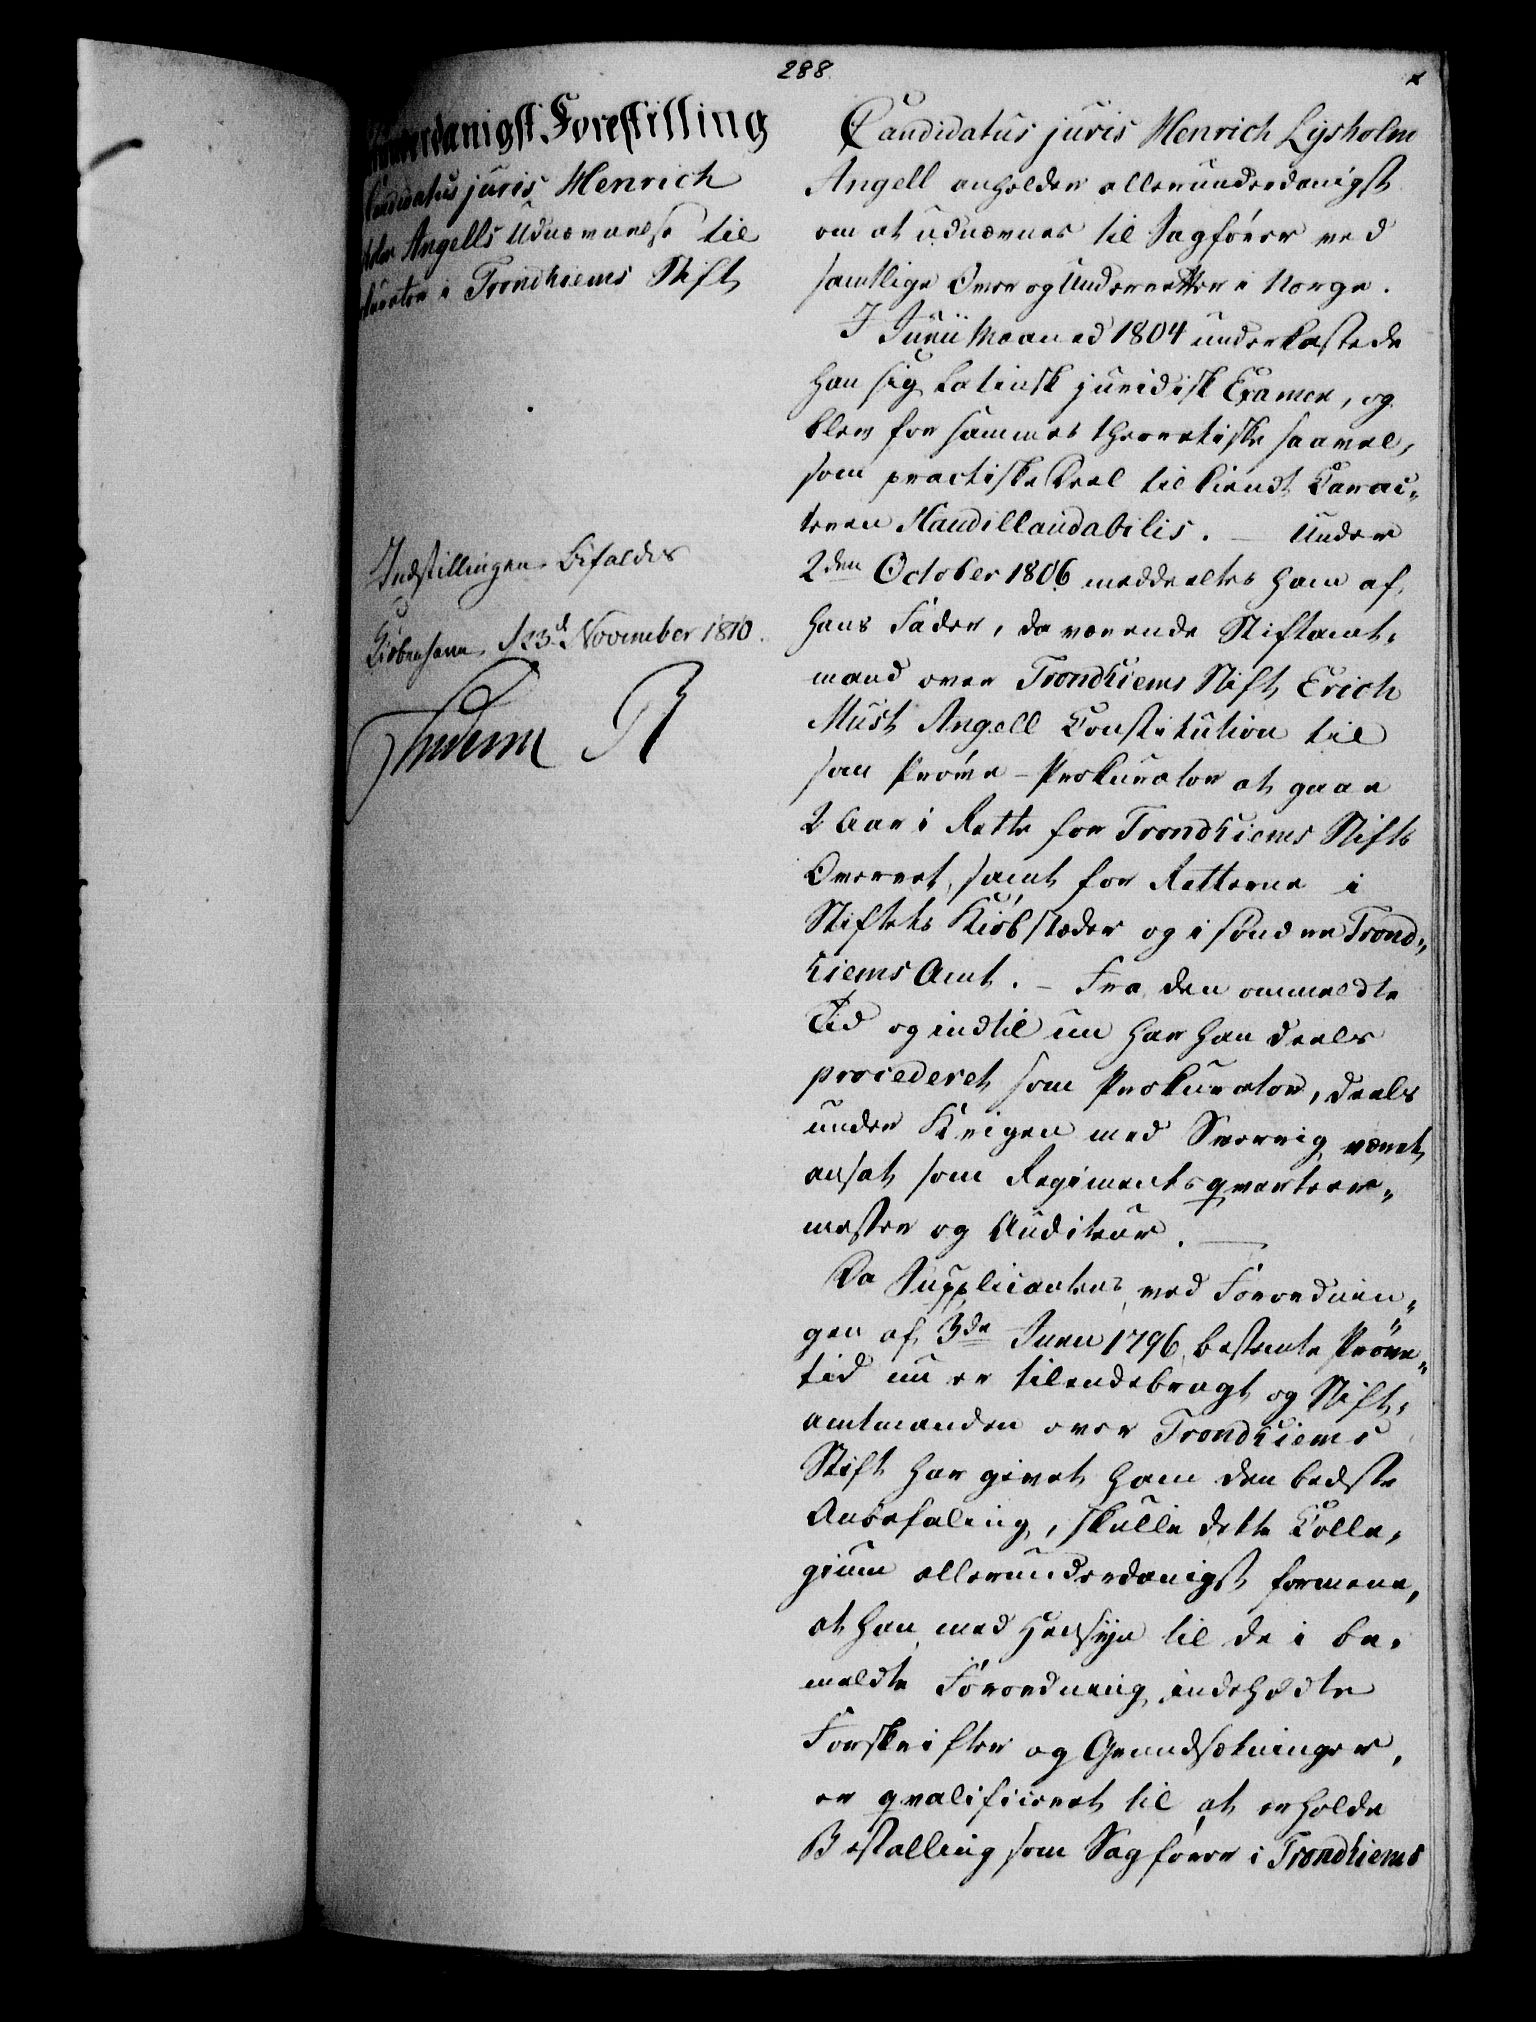 288.
Allerunderdanigst Forestilling
Candidatus juris Henrich
Angells Udnævnelse til
Procurator i Trondhiems Stift
Indstillingen bifaldes
Kiöbenhavn, d 23d November 1810.
Friderich R
Candidatus juris Henrich Lysholm
Angell anholder allerunderdanigst
om at udnævnes til Sagfører ved
samtlige Over og Underretter i Norge.
I Junii Maaned 1804 underkastede
han sig Latinsk juridisk Examen, og
blev for sammes theoretiske saavel,
som practiske Deel tilkiendt Carac„
teren Haud illaudabilis. — Under
2den October 1806 meddeeltes ham af
hans Fader, da værende Stiftamt„
mand over Trondhiems Stift Erich
Must Angell Constitution til
som Prøve-Prokurator at gaae
2 Aar i Rette for Trondhiems Stifts
Overret, samt for Retterne i
Stiftets Kiøbstæder og i søndre Trond„
hiems Amt. – Fra den ommeldte
Tid og indtil nu har han deels
procederet som Prokurator, deels
under Krigen med Sverrig været
ansat som Regimentsqvarteer„
mester og Auditeur. —
Da Supplicantens ved Forordnin„
gen af 3de Juni 1796 bestemte Prøve„
tid nu er tilendebragt og Stift„
amtmanden over Trondhiems
Stift har givet ham den bedste
Anbefaling, skulle dette Colle„
gium allerunderdanigst formene,
at han med Hensyn til de i be„
meldte Forordning indeholdte
Forskrifter og Grundsætninger,
er qvalificeret til at erholde
Bestalling som Sagfører i Trondhiems